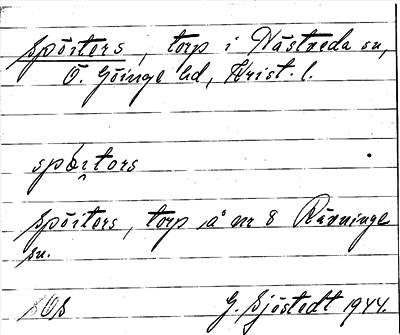 Spörtors, torp i Nåstreda sn,
Ö. Göinge hd, Krist. l.
spö́rtors
Spörtors, torp å nr 8 Rävninge
sn.
G. Sjöstedt 1944.